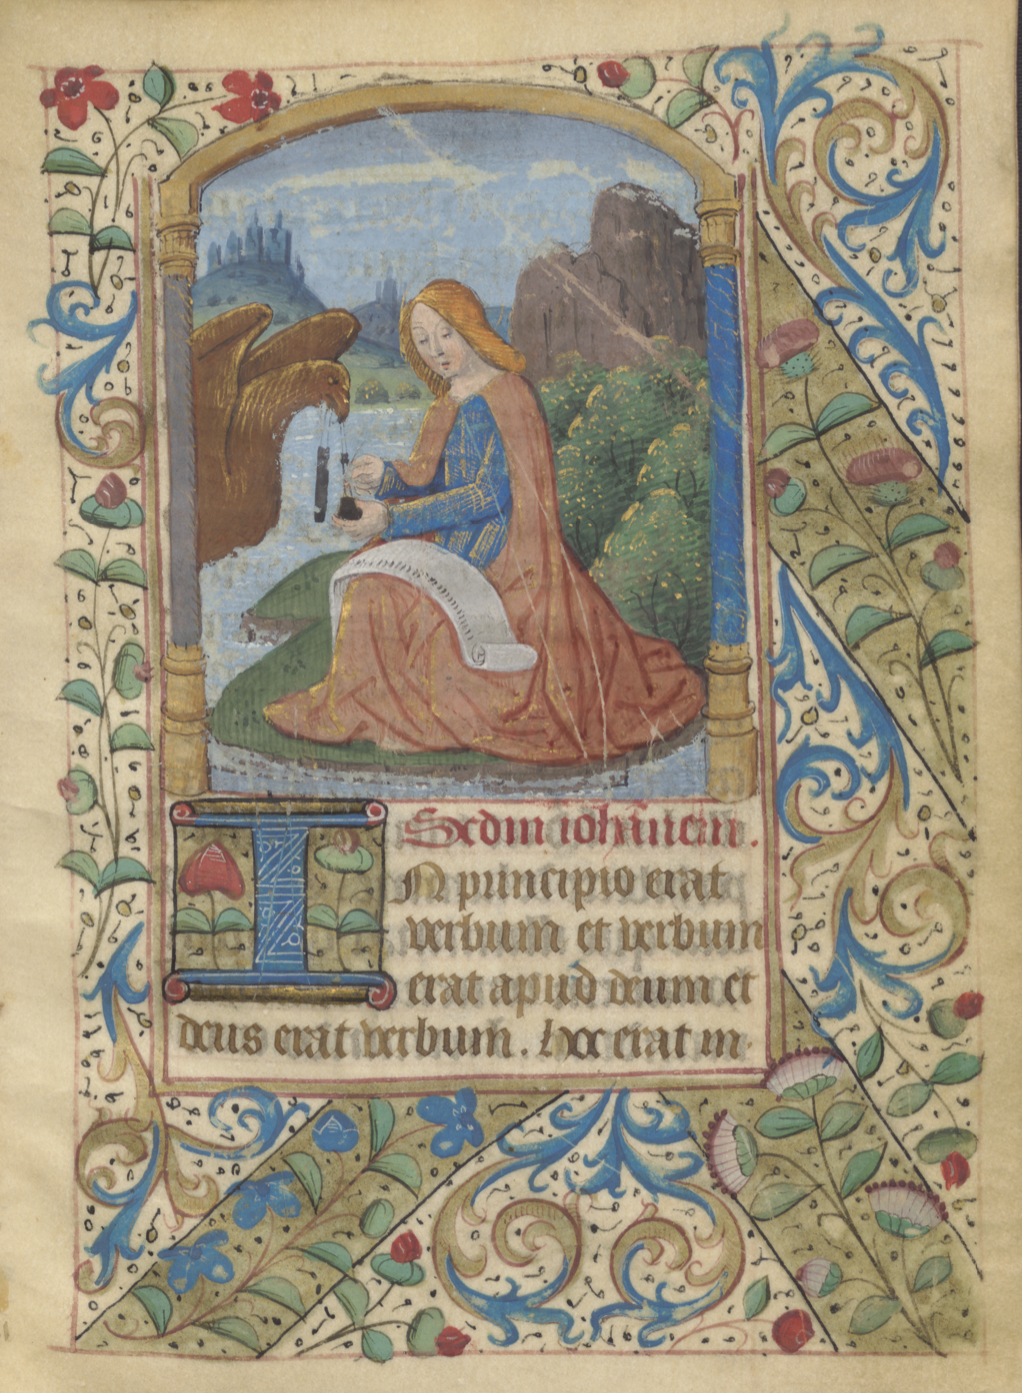 Scdm iohannem.
IN principio erat
verbum et verbum
erat apud deum et
deus erat verbum. hoc erat in